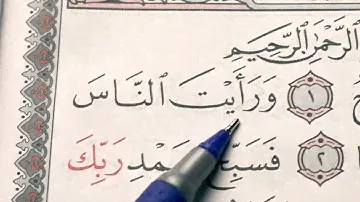 الرَّحْمَٰنِ ٱلرَّحِيمِ
١ وَرَأَيْتَ ٱلنَّاسَ
٢ فَسَبِّحْ رَبِّكَ